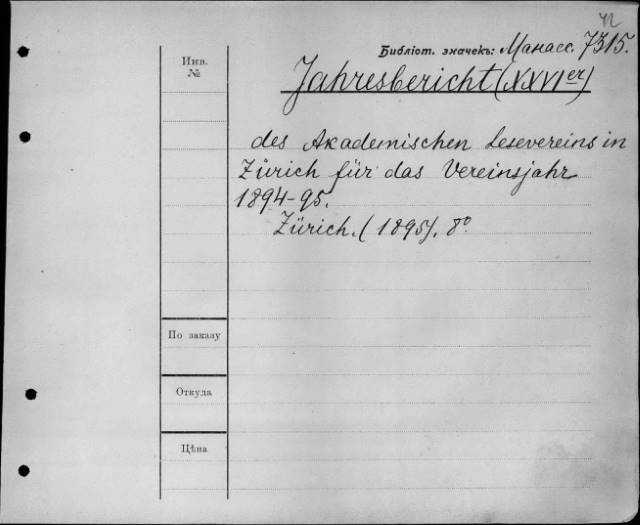 Библіот. значекъ: Манасс. 7315.
Инв.
№
Jahresbericht (XXVIer)
des Akademischen Lesevereins in
Zürich für das Vereinsjahr
1894-95.
Zürich. (1895). 8º
По заказу
Откуда
Цѣна